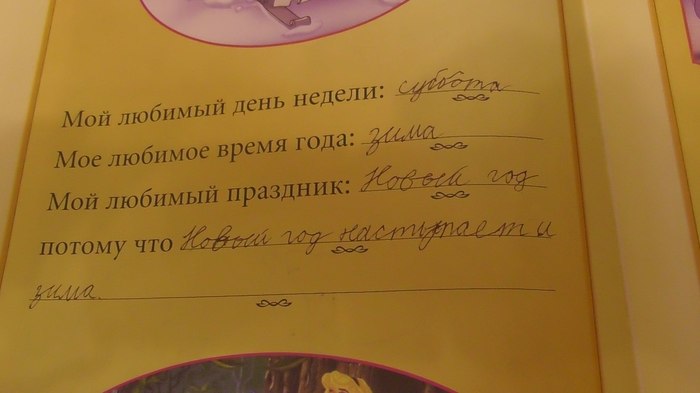 Мой любимый день недели: суббота
Мое любимое время года: зима
Мой любимый праздник: Новый год
потому что Новый год наступает и
зима.